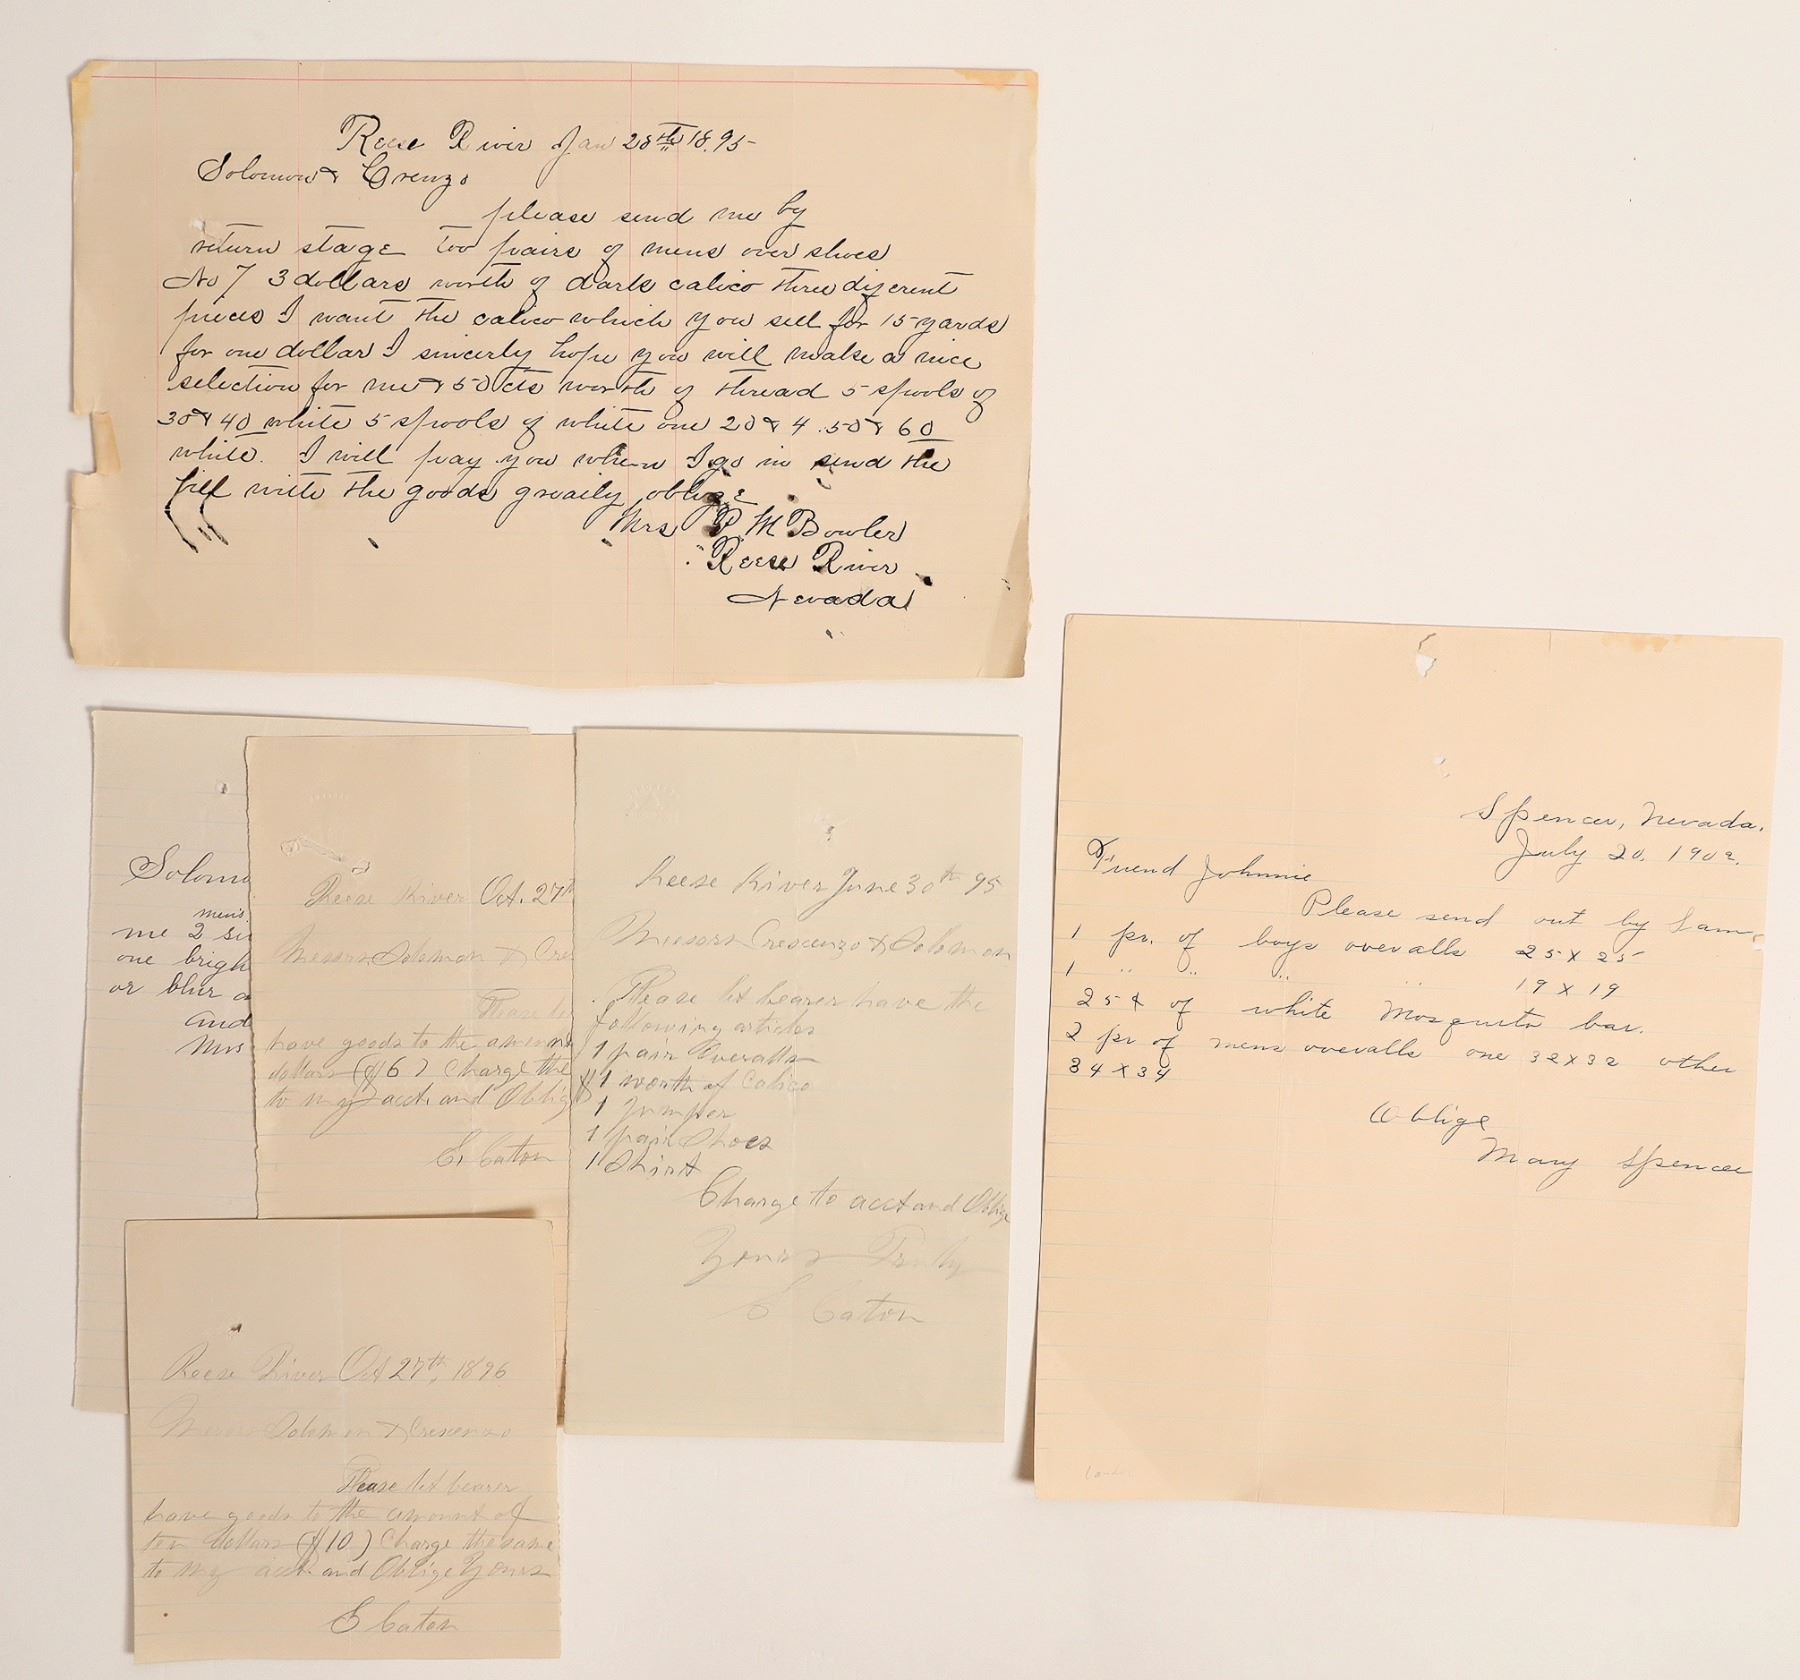 Reese River Jan 28th 18.95-
Solomon & Crenzo
please send me by
return stage too pairs of mens over shoes
No 7 3 dollars worth of dark calico three diferent
pieces I want the calico which you sell for 15 yards
for one dollar I sincerly hope you will make a nice
selection for me & 50 cts worth of thread 5 spools of
30 & 40 white 5 spools of white one 20 & 4 .50 & 60
white. I will pay you when I go in send the
bill with the goods greaily oblige
Mrs P. M Bowler
Reese River
Nevada
Solomo
mens
me 2 su
one brigh
or blur a
and
Mrs
Reese River Oct. 27th
Messrs Soloman & Cres
Please let
have goods to the amoun
dollars ($6) Charge the
to my acct. and Oblig
E, Caton
Reese River June 30th 95
Messrs Crescenzo & Soloman
Please let bearer have the
following articles
1 pair Overalls
$1 worth of Calico
1 Jumper
1 pair Shoes
1 Shirt
Charge to acct and Oblige
Yours Truly
E Caton
Reese River Oct 27th, 1896
Messrs Soloman & Crescenzo
Please let bearer
have goods to the amount of
ten dollars ($10) Charge the same
to my acct. and Oblige Yours
E Caton
Spencer, Nevada.
July 20, 1902.
Friend Johnnie
Please send out by Sam
1 pr. of boys overalls 25 x 25
1 " " " " 19 x 19
25¢ of white Mosquito bar.
2 pr of mens overalls one 32x32 other
34 x 34
Oblige
Mary Spencer